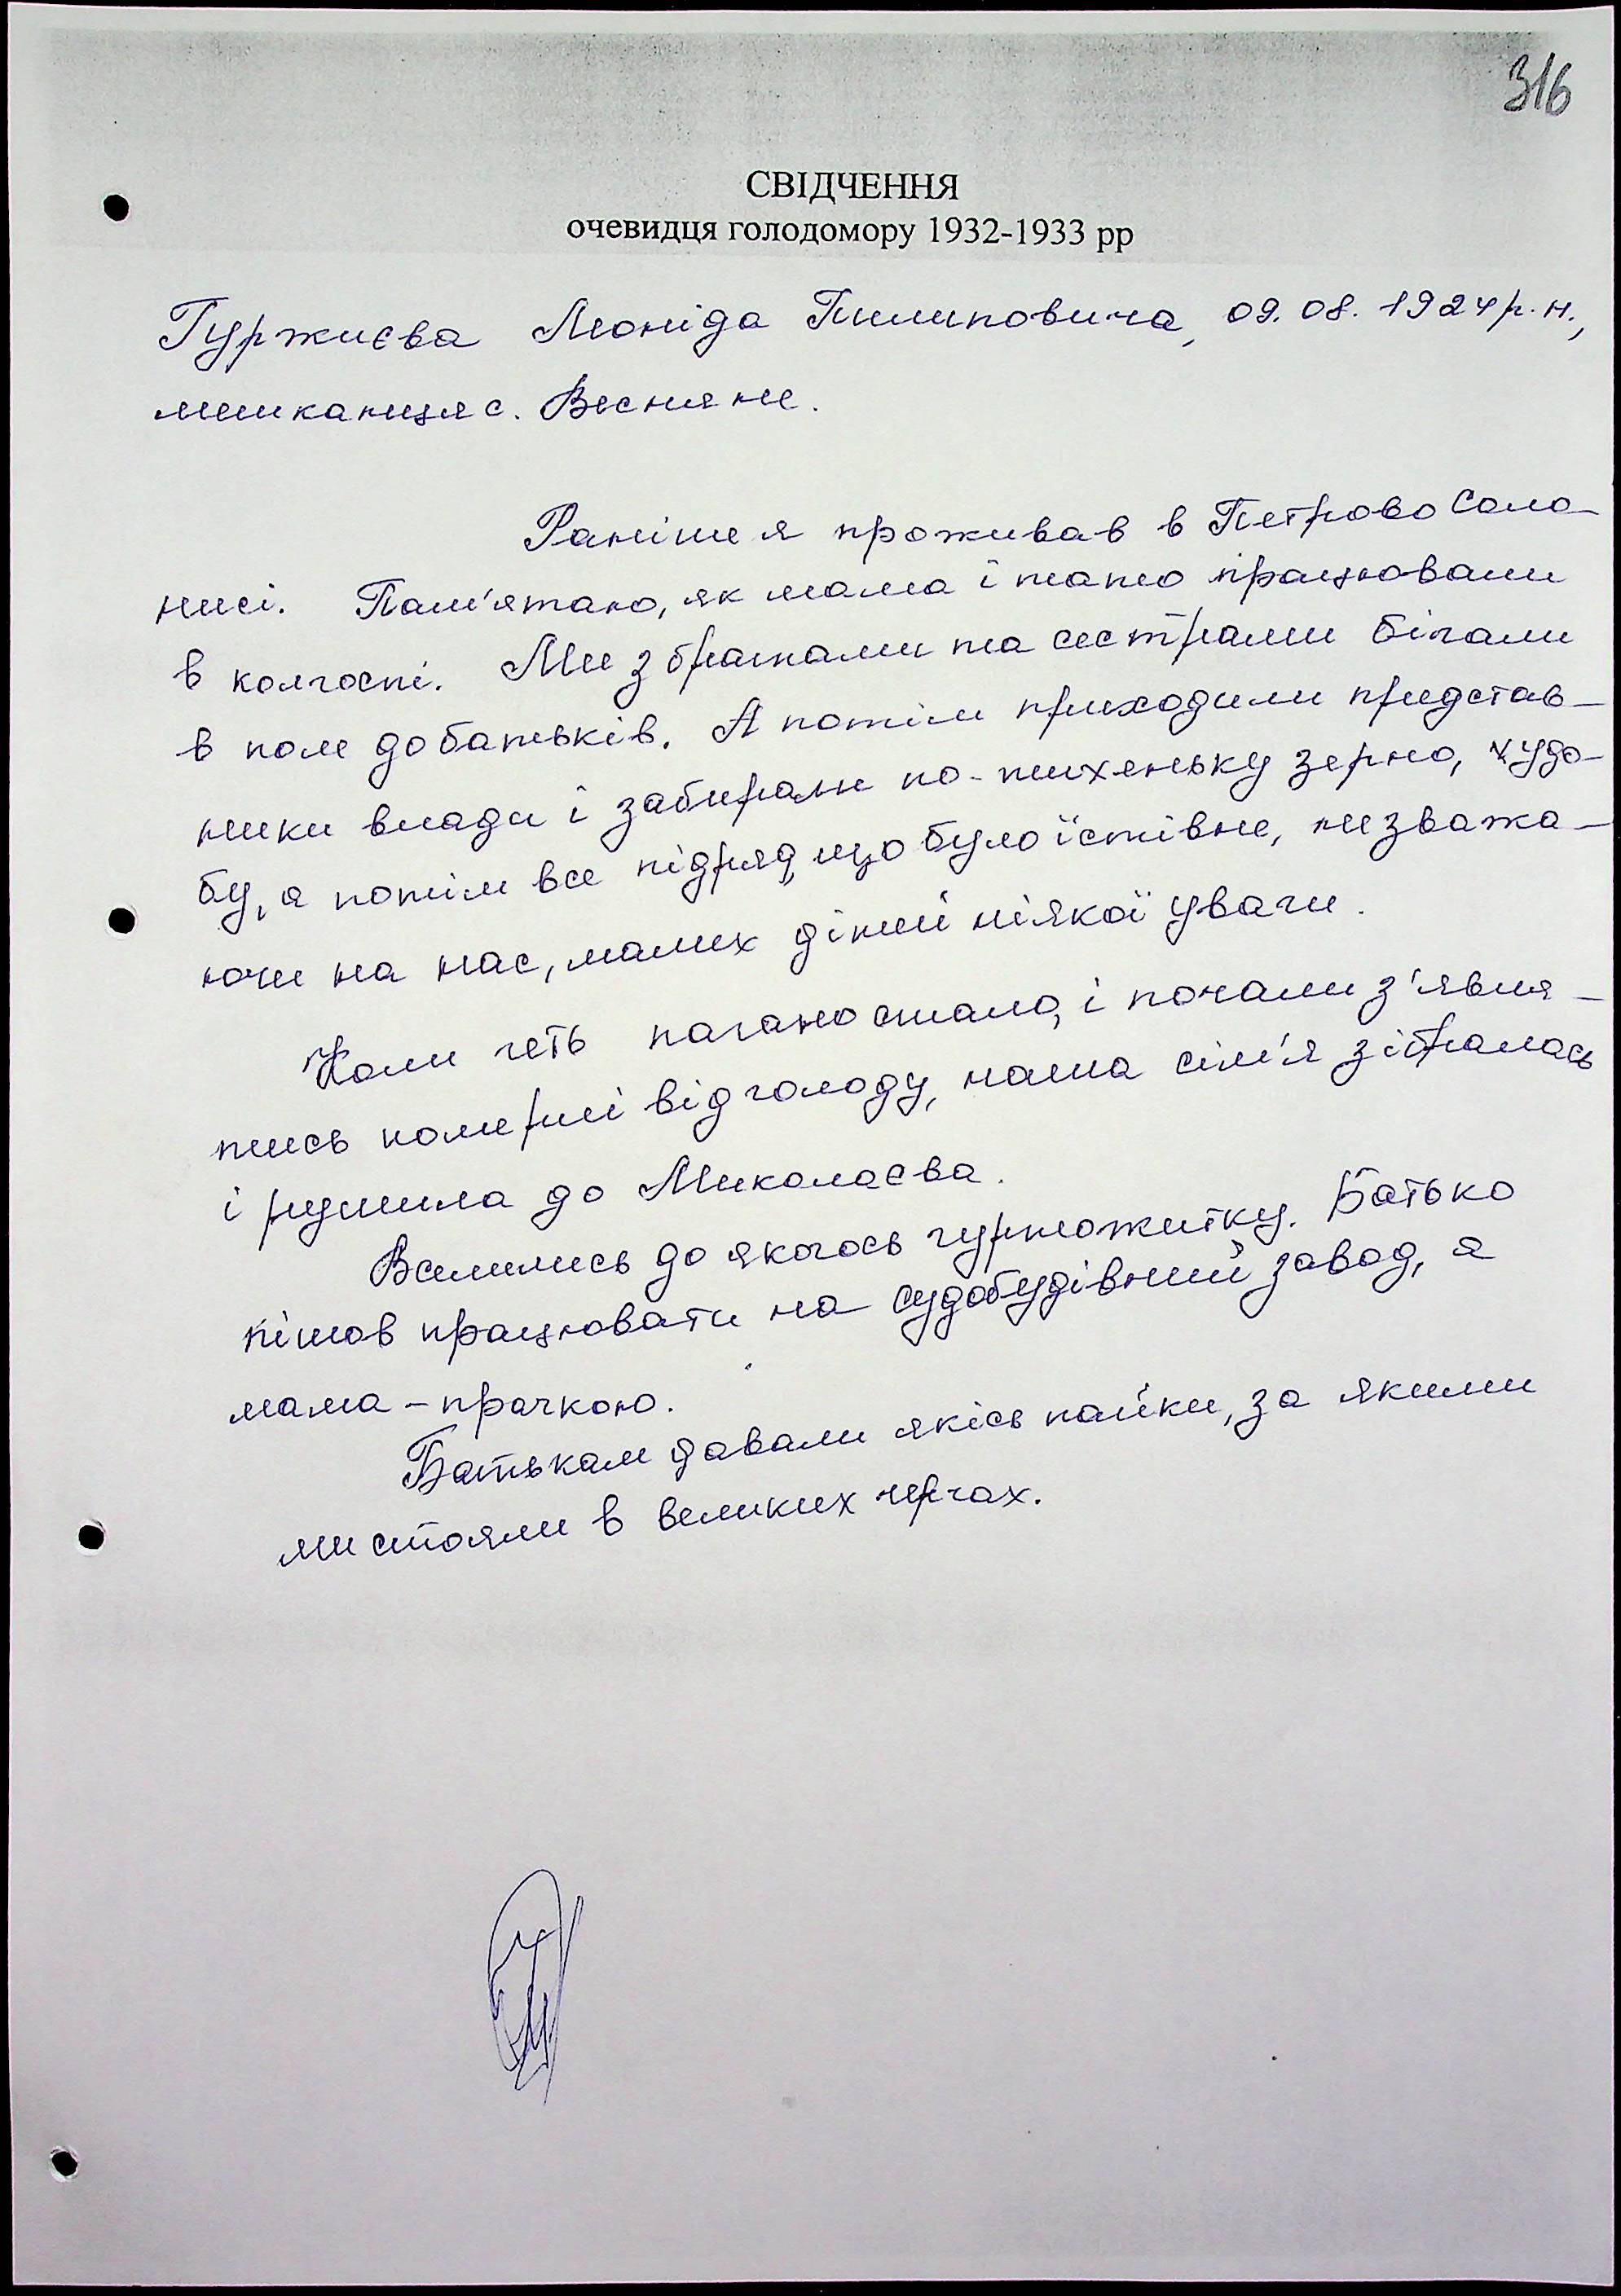 316
СВІДЧЕННЯ
очевидця голодомору 1932-1933 рр
Гуржиєва Леоніда Пилиповича, 09.08.1924 р.н.,
мешканця с. Весняне.
Раніше я проживав в Петрово Соло-
нисі. Пам'ятаю, як мама і тато працювали
в колгоспі. Ми з братами та сестрами бігали
в поле до батьків. А потім приходили представ-
ники влади і забирали по-тихеньку зерно, худо-
бу, а потім все підряд, що було їстівне, не зважа-
ючи на нас, малих дітей ніякої уваги.
Коли геть погано стало, і почали з'явля-
тись померлі від голоду, наша сім'я зібралась
і рушила до Миколаєва.
Вселились до якогось гуртожитку. Батько
пішов працювати на судобудівний завод, а
мама – прачкою.
Батькам давали якісь пайки, за якими
ми стояли в великих чергах.